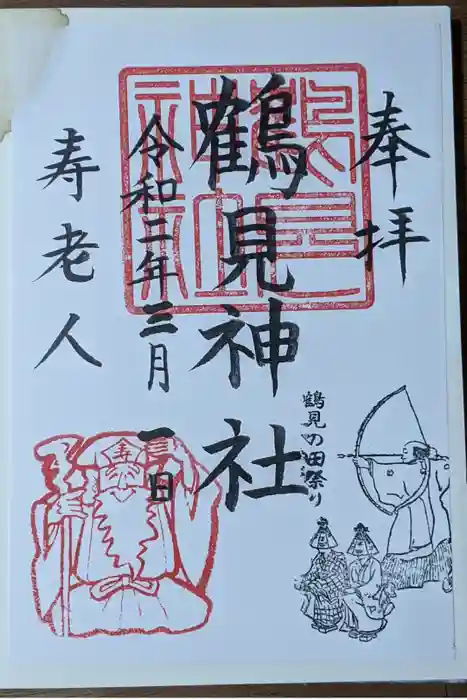 奉拝
鶴見の田祭り
鶴見神社
令和二年三月一日
寿老人
寿